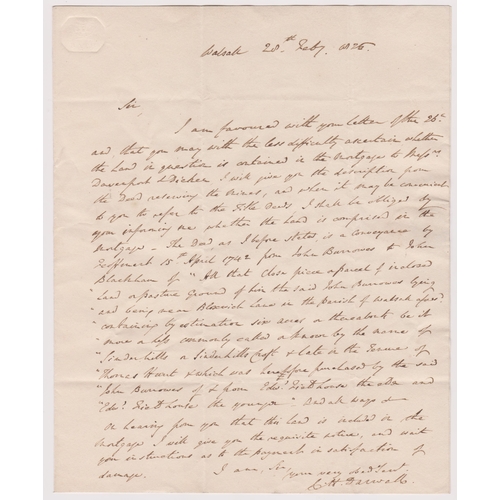 Walsall 28th Feby. 1826.
Sir,
I am favoured with your letter of the 25th
and that you may with the less difficulty ascertain whether
the Land in question is contained in the Mortgage to Messrs
Davenport & Dicker I will give you the description from
the Deed reserving the Mines, and when it may be convenient
to you to refer to the Title Deeds I shall be obliged by
your informing me whether the Land is comprised in the
Mortgage – The Deed as I before stated, is a conveyance by
Feoffment 15th April 1742 from John Burrowes to John
Blackham of "All that close piece or parcel of inclosed
Land or pasture Ground of him the said John Burrowes lying
"and being near Bloxwich Lane in the parish of Walsall afsd.
"containing by estimation six acres or thereabouts be it
"more or less commonly called or known by the name of
"Sinderhills or Sinderhills Croft & late in the Tenure of
"Thomas Hunt & which was heretofore purchased by the said
"John Burrowes of & from Edwd. the elder and
"Edwd. the younger" and all ways &
On hearing from you that this land is included in the
Mortgage I will give you the requisite notice, and wait
your instructions as to the payments in satisfaction of
damage.
I am, Sir,
your very obedt. sert
C H Darwall